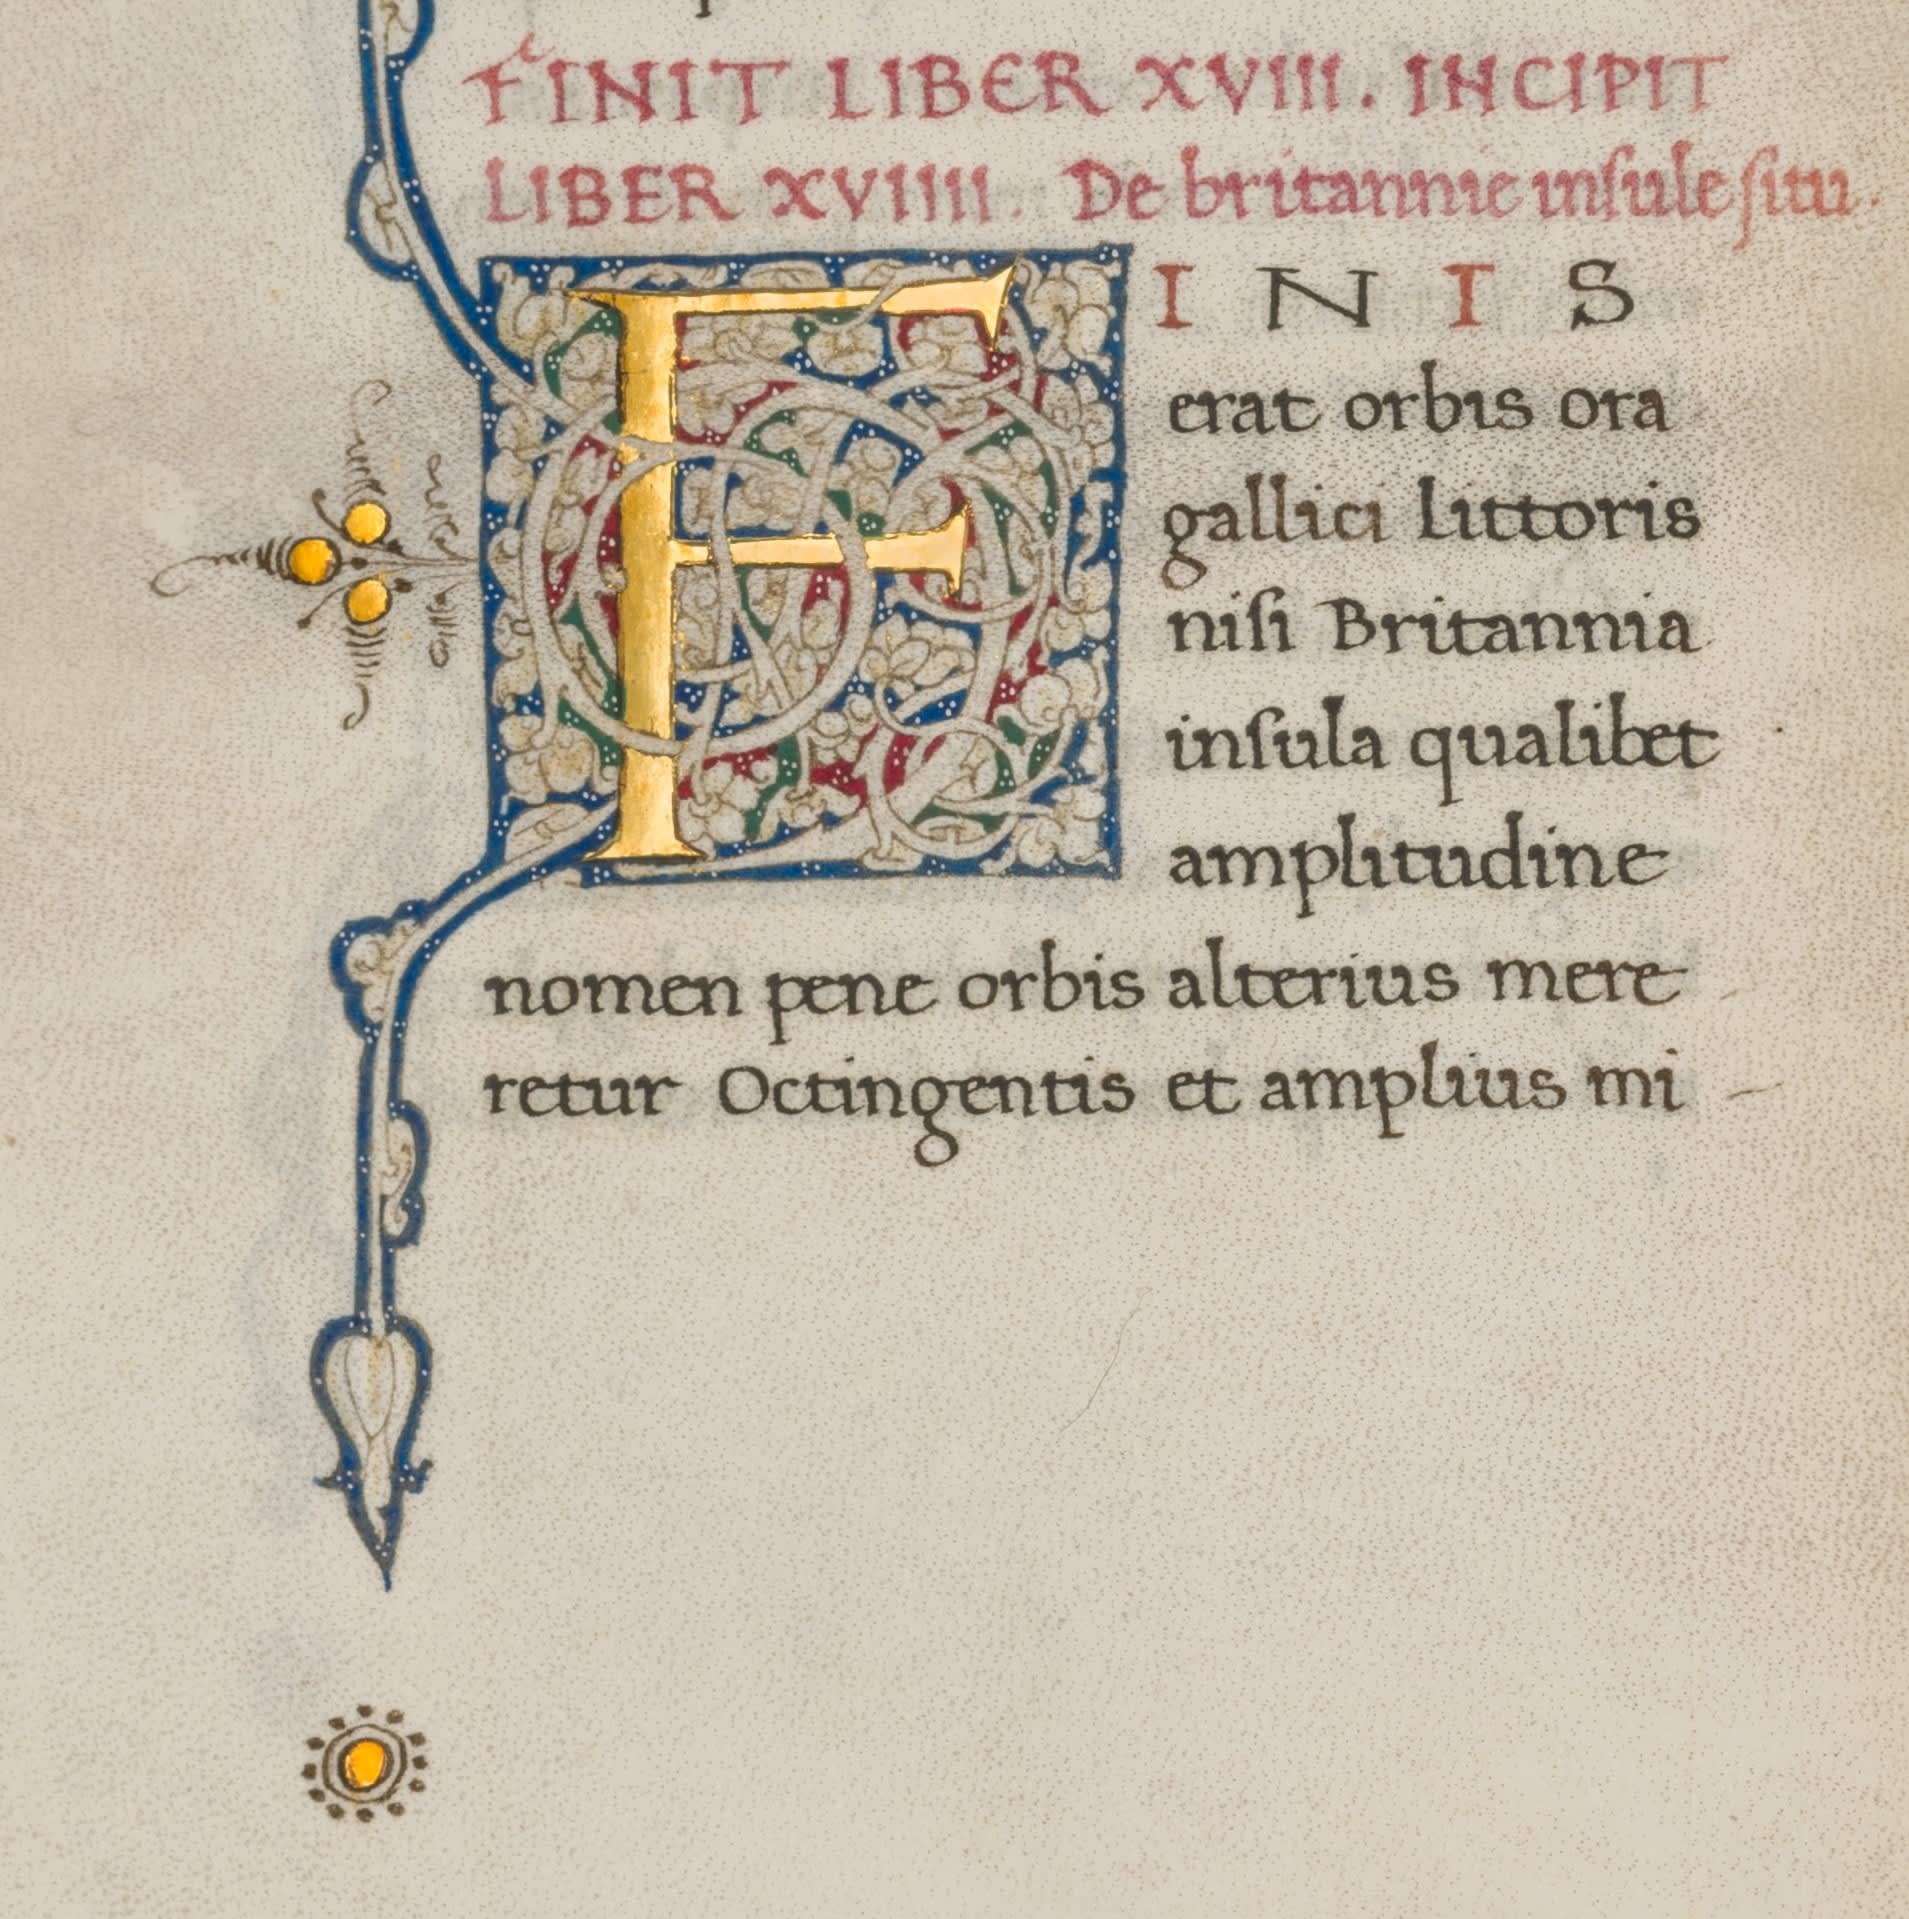 FINIT LIBER XVIII. INCIPIT
LIBER XVIIII. De britannie inſule ſitu.
FINIS
erat orbis ora
gallici littoris
niſi Britannia
inſula qualibet
amplitudine
nomen pene orbis alterius mere
retur Octingentis et amplius mi